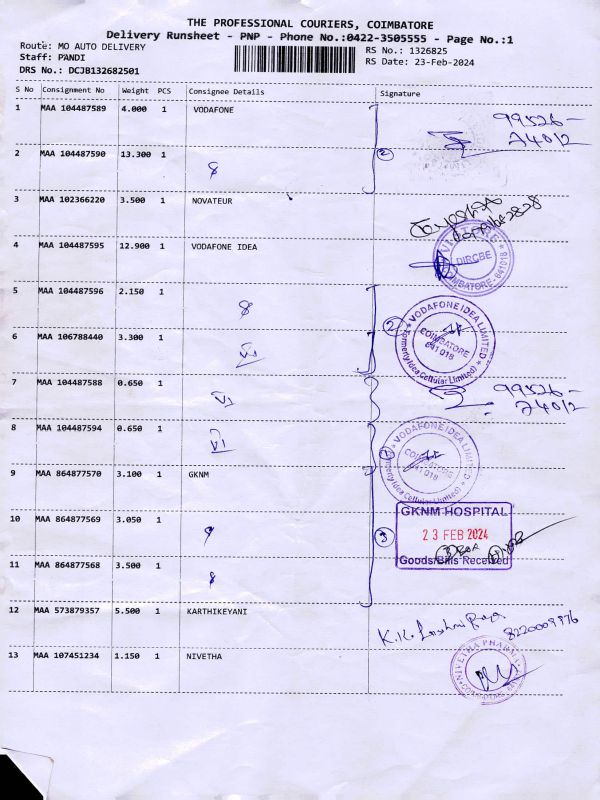 THE PROFESSIONAL COURIERS, COIMBATORE
Delivery Runsheet - PNP - Phone No.:0422-3505555 - Page No.:1
Route: MO AUTO DELIVERY
RS No.: 1326825
Staff: PANDI
RS Date: 23-Feb-2024
DRS No.: DCJB132682501
S No Consignment No Weight PCS Consignee Details Signature
1 MAA 104487589 4.000 1 VODAFONE
99526-
74012
2 MAA 104487590 13.300 1
3 MAA 102366220 3.500 1 NOVATEUR
4 MAA 104487595 12.900 1 VODAFONE IDEA
DIRCBE
COIMBATORE - 641018
5 MAA 104487596 2.150 1
VODAFONE IDEA LIMITED
COIMBATORE
641 018
(Formerly Idea Cellular Limited)
6 MAA 106788440 3.300 1
VI
7 MAA 104487588 0.650 1
VI
99526-
74012
8 MAA 104487594 0.650 1
VI
VODAFONE IDEA LIMITED
COIMBATORE
641 018
(Formerly Idea Cellular Limited)
9 MAA 864877570 3.100 1 GKNM
GKNM HOSPITAL
23 FEB 2024
Goods/Bills Received
10 MAA 864877569 3.050 1
11 MAA 864877568 3.500 1
12 MAA 573879357 5.500 1 KARTHIKEYANI
8220009976
13 MAA 107451234 1.150 1 NIVETHA
NIVETHA PHARMA